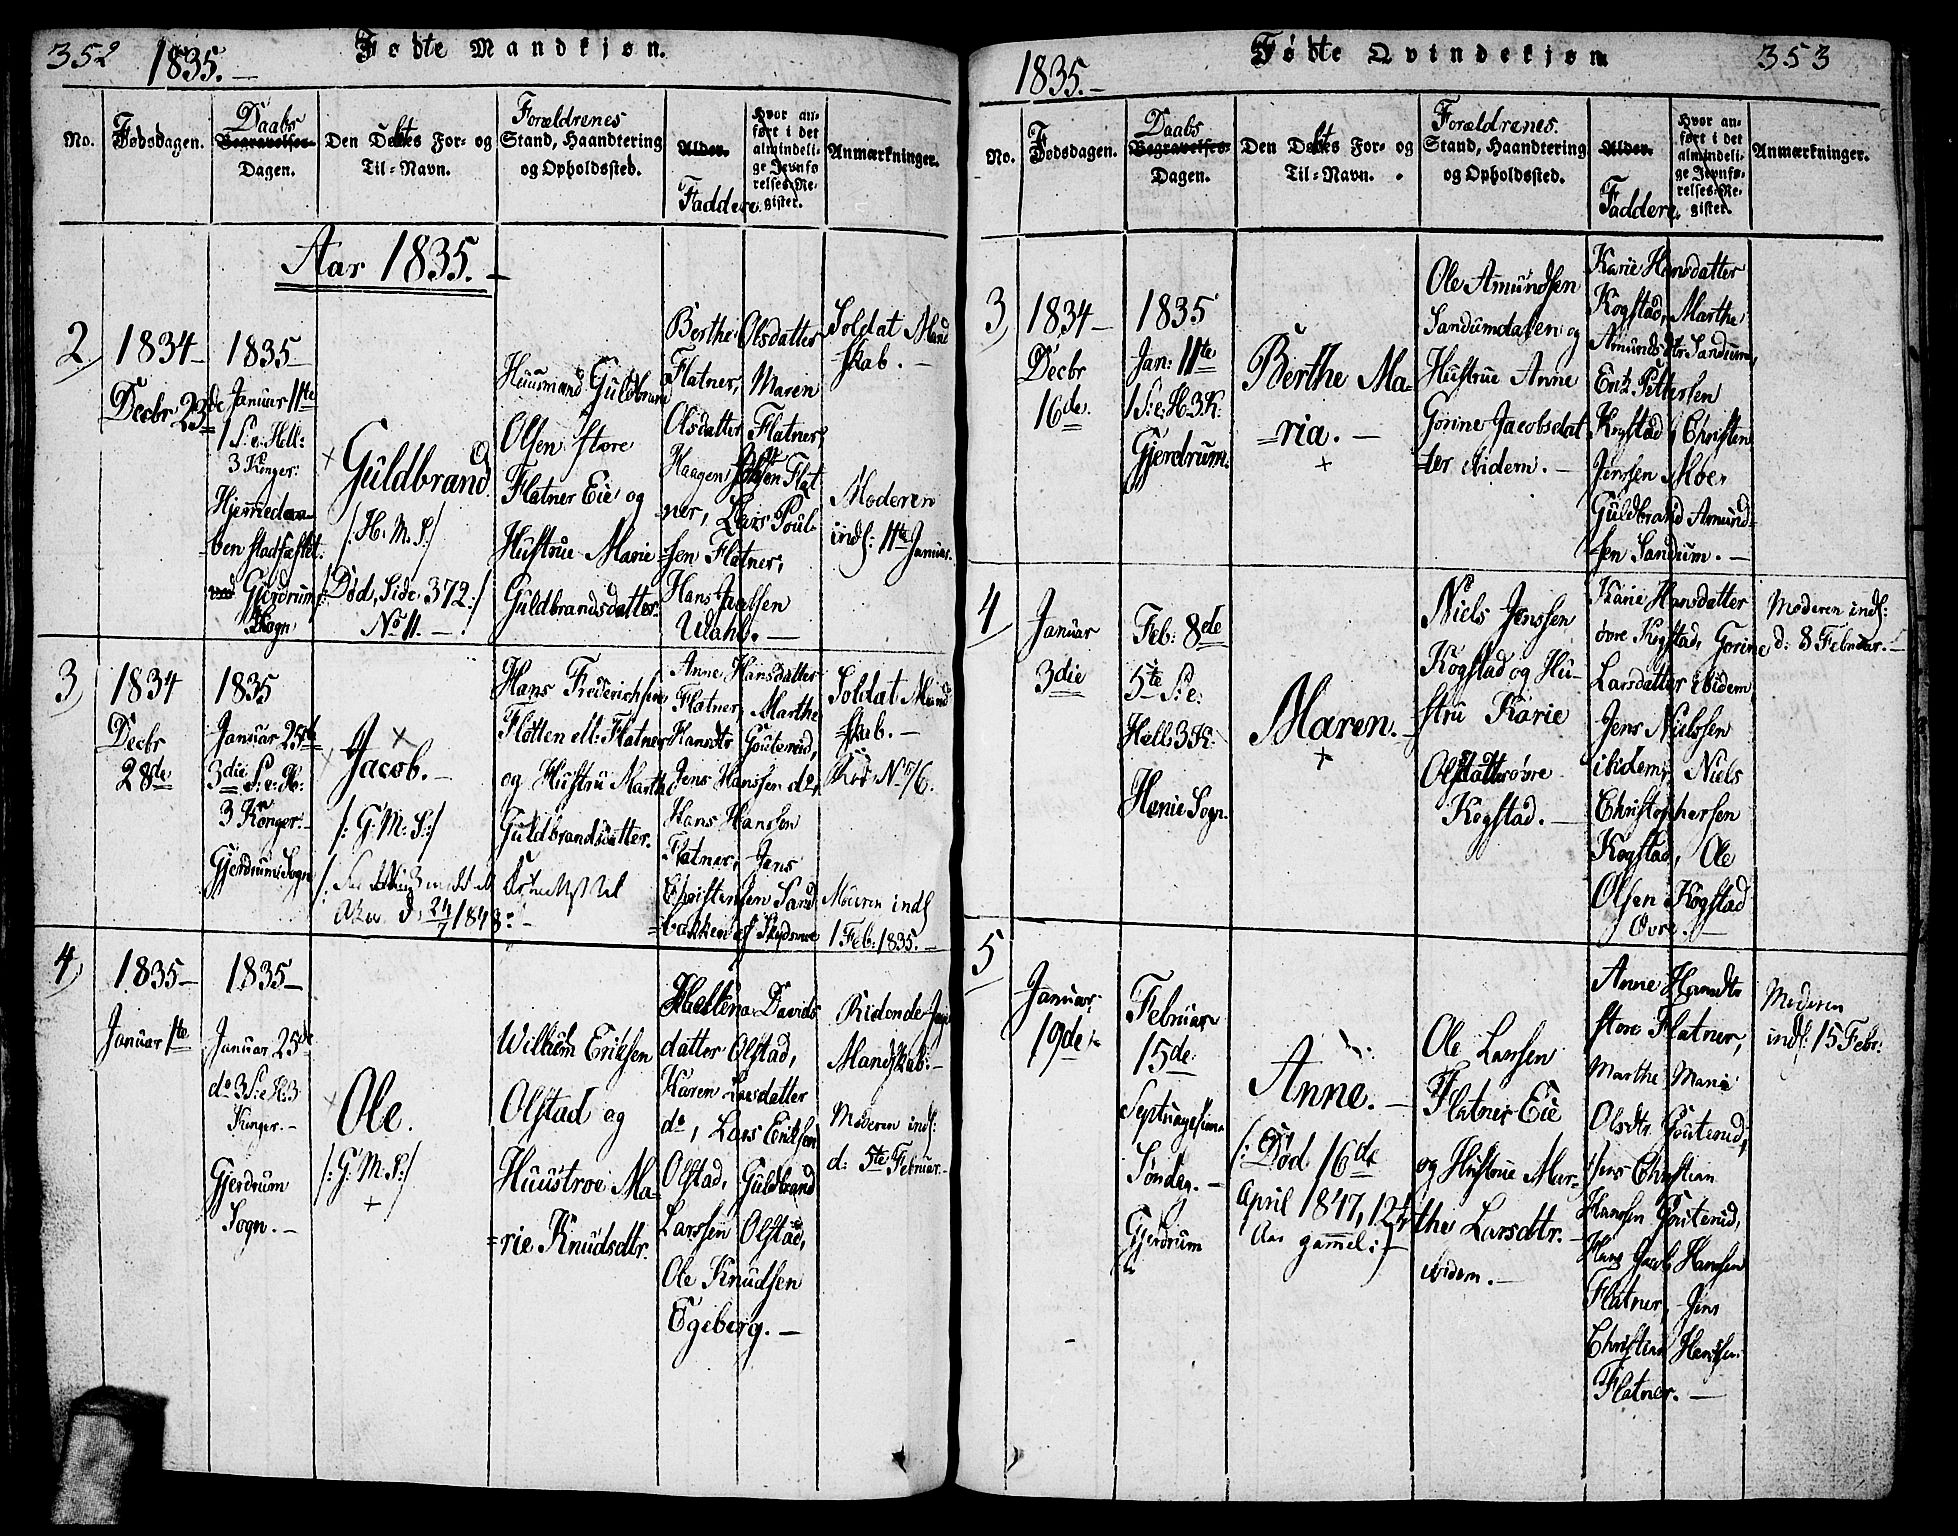 352 1835.— Fødte Mandkjøn.
No.
Fødsdagen.
Daabs
Begravelses-
Dagen.
Den Døbtes For- og
Til-Navn.
Forældrenes
Stand, Haandtering
og Opholdssted.
Alder.
Faddere.
Hvor an-
ført i det
almindeli-
ge Jevnfø-
relses-Re-
gister.
Anmærkninger.
Aar 1835.—
2
1834—
Decbr 23de
1835—
Januar 11te
1 S: e: Hell:
3 Konger:
Hjemmedaa-
ben stadfæstet
ved Gjerdrums
Sogn
Guldbrand
/: H. M. S:/
/Død, Side 372:/
No 11.—
Huusmand Guldbrand
Olsen store
Flatner Eie og
Hustrue Marie
Guldbrandsdatter.
Berthe Olsdatter
Flatner, Maren
Olsdatter Flatner,
Haagen Flat
ner, Lars Poul-
sen Flatner,
Hans
Soldat Mand
skab.—
Moderen
indl: 11te Januar.
3
1834
Decbr
28de
1835
Januar 25de
3die S: e: H:
3 Konger.—
Gjerdrums Sogn
Jacob.—
/: G: M: S:/
Hans Frederichsen
Fløtten ell: Flatner
og Hustru Marthe
Guldbrandsdatter.
Anne Hansdatter
Flatner, Marthe
Hansdtr Gouterud,
Jens Hanssen do,
Hans Hanssen
Flatner, Jens
Christensen Sand
bakken af Skydsmoe
Soldat Mand
skab.—
Moderen indl
1 Feb: 1835.—
4
1835—
Januar 1te
1835—
Januar 25de
do 3 S: e: H: 3
Konger.—
Gjerdrum
Sogn.—
Ole.
/: G: M: S:/
Wilhelm Eriksen
Olstad og
Huustroe Ma-
rie Knudsdtr.
Hellena Davids
datter Olstad,
Karen Larsdatter
do, Lars Eriksen
Olstad, Guldbrand
Larssen Olstad,
Ole Knudsen
Egeberg.—
Ridende Jæger
Mandskab.—
Moderen indl:
d: 5te Februar.—
1835.— Fødte Qvindekjøn 353
No.
Fødsdagen.
Daabs
Begravelses-
Dagen.
Den Døbtes For- og
Til-Navn.
Forældrenes.
Stand, Haandtering
og Opholdssted.
Alder.
Faddere.
Hvor an-
ført i det
almindeli-
ge Jevnfø-
relses-Re-
gister.
Anmærkninger.
3
1834—
Decbr
16de.
1835
Jan: 11te
1 S: e: H. 3 K:
Gjerdrum.
Berthe Ma-
ria.—
Ole Amundsen
Sandumdalen og
Hustrue Anne
Gorine Jacobsdat
ter ibidem.—
Karie Hansdatter
Kogstad, Marthe
Amundsdtr Sandum,
Erik Pettersen
Kogstad, Christen
Jenssen Moe,
Guldbrand Amund-
sen Sandum.—
4
Januar
3die
Feb: 8de
5te S: e:
Hell: 3 K:
Hænie Sogn.
Maren.—
Niels Jenssen
Kogstad og Hu-
stru Karie
Olsdatter øvre
Kogstad.—
Karie Hansdatter
øvre Kogstad, Gorine
Larsdatter ibidem
Jens Nielssen
ibidem, Niels
Christophersen
Kogstad, Ole
Olsen Kogstad
Øvre.—
Moderen indl:
d: 8 Februar.—
5
Januar
19de
Februar
15de
Septuagesima
Søndag.—
Gjerdrum
Anne.—
/: Død 16de
April 1847, 12 1/4
Aar gammel:/
Ole Larssen
Flatner Eie
og Hustrue Mar-
the Larsdtr.—
ibidem.—
Anne Hansdtr
store Flatner,
Marthe Marie
Olsdtr Gouterud,
Jens Christian
Hanssen Gouterud,
Hans Jacob Hanssen
Flatner, Jens
Christian Hanssen
Flatner.—
Moderen
indl: 15 Febr: